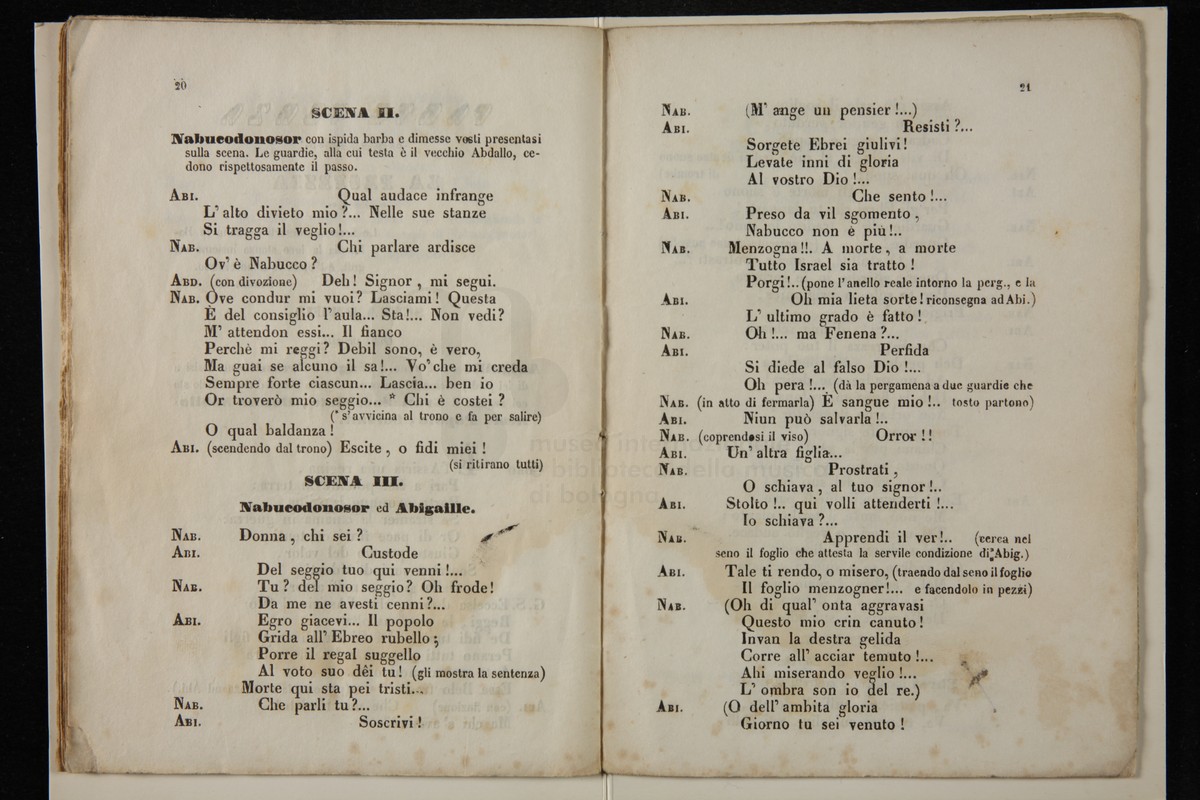 20
SCENA II.
Nabucodonosor con ispida barba e dimesse vesti presentasi
sulla scena. Le guardie, alla cui testa è il vecchio Abdallo, ce-
dono rispettosamente il passo.
ABI. Qual audace infrange
L' alto divieto mio ?... Nelle sue stanze
Si tragga il veglio !...
NAB. Chi parlare ardisce
Ov' è Nabucco ?
ABD. (con divozione) Deh ! Signor , mi segui.
NAB. Ove condur mi vuoi ? Lasciami ! Questa
È del consiglio l'aula... Sta !... Non vedi ?
M' attendon essi... Il fianco
Perchè mi reggi ? Debil sono, è vero,
Ma guai se alcuno il sa !... Vo' che mi creda
Sempre forte ciascun... Lascia... ben io
Or troverò mio seggio... * Chi è costei ?
(* s' avvicina al trono e fa per salire)
O qual baldanza !
ABI. (scendendo dal trono) Escite , o fidi miei !
(si ritirano tutti)
SCENA III.
Nabucodonosor ed Abigaille.
NAB. Donna , chi sei ?
ABI. Custode
Del seggio tuo qui venni !...
NAB. Tu ? del mio seggio ? Oh frode !
Da me ne avesti cenni ?...
ABI. Egro giacevi... Il popolo
Grida all' Ebreo rubello ;
Porre il regal suggello
Al voto suo dêi tu ! (gli mostra la sentenza)
Morte qui sta pei tristi...
NAB. Che parli tu ?...
ABI. Soscrivi !
museo internazionale
e biblioteca della musica
di bologna
21
NAB. (M' ange un pensier !...)
ABI. Resisti ?...
Sorgete Ebrei giulivi !
Levate inni di gloria
Al vostro Dio !...
NAB. Che sento !...
ABI. Preso da vil sgomento ,
Nabucco non è più !..
NAB. Menzogna !!. A morte , a morte
Tutto Israel sia tratto !
Porgi !.. (pone l'anello reale intorno la perg., e la
ABI. Oh mia lieta sorte ! riconsegna ad Abi.)
L' ultimo grado è fatto !
NAB. Oh !... ma Fenena ?...
ABI. Perfida
Si diede al falso Dio !...
Oh pera !... (dà la pergamena a due guardie che
NAB. (in atto di fermarla) È sangue mio !.. tosto partono)
ABI. Niun può salvarla !..
NAB. (coprendosi il viso) Orror !!
ABI. Un' altra figlia...
NAB. Prostrati ,
O schiava , al tuo signor !..
ABI. Stolto !.. qui volli attenderti !...
Io schiava ?...
NAB. Apprendi il ver !.. (cerca nel
seno il foglio che attesta la servile condizione di Abig.)
ABI. Tale ti rendo, o misero, (traendo dal seno il foglio
Il foglio menzogner !... e facendolo in pezzi)
NAB. (Oh di qual' onta aggravasi
Questo mio crin canuto !
Invan la destra gelida
Corre all' acciar temuto !...
Ahi miserando veglio !...
L' ombra son io del re.)
ABI. (O dell' ambita gloria
Giorno tu sei venuto !